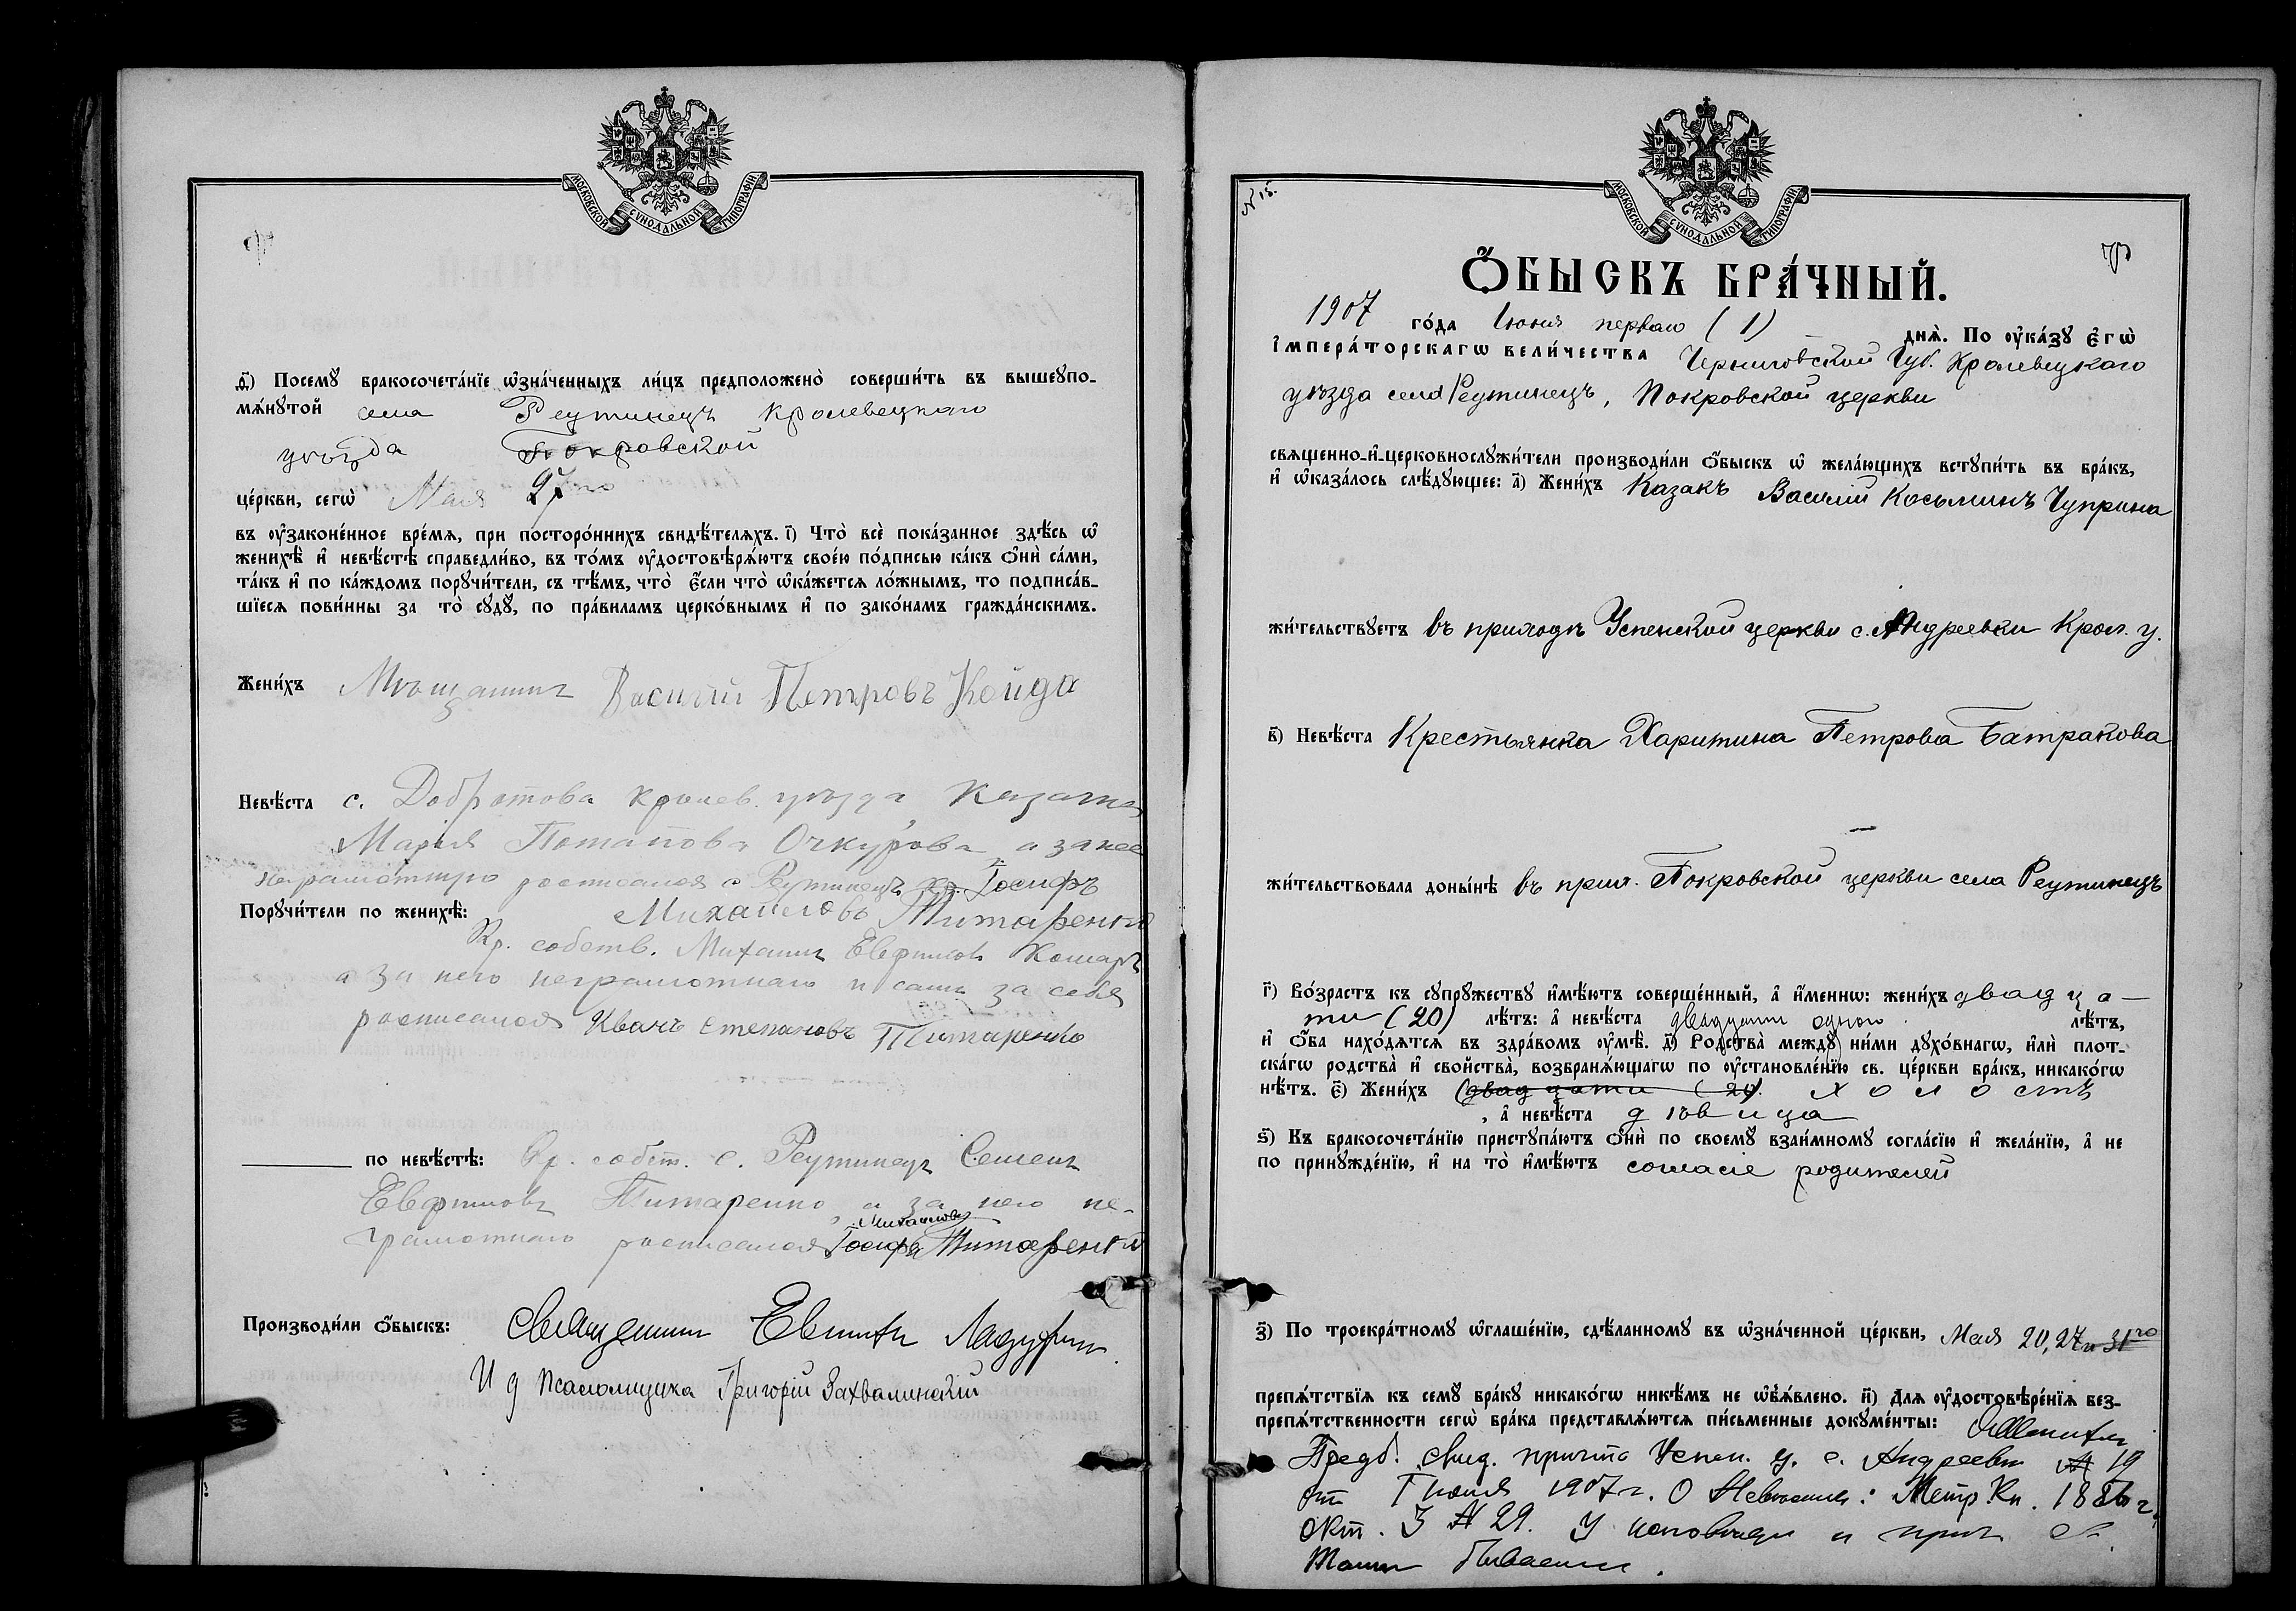 МОСКОВСКОЙ СѴНОДАЛЬНОЙ ТИПОГРАФІИ
д҃і) Посемꙋ бракосочета́нїе ѡ҆зна́ченныхъ ли́цъ предположено̀ соверши́ть въ вышеꙋпо-
мѧ́нꙋтой села Реутинецъ Кролевецкаго
уѣзда Покровской
це́ркви, сегѡ̀ Мая 27го
въ ᲂу҆законе́нное вре́мѧ, при посторо́ннихъ свидѣ́телѧхъ. і҃) Что̀ всѐ пока́занное здѣ́сь ѡ҆
женихѣ̀ и҆ невѣ́стѣ справедли́во, въ то́мъ ᲂу҆достовѣрѧ́ютъ свое́ю по́дписью ка́къ ѻ҆нѝ са́ми,
та́къ и҆ по ка́ждомъ порꙋчи́тели, съ тѣ́мъ, что̀ є҆́сли что̀ ѡ҆ка́жетсѧ ло́жнымъ, то подписа́в-
шїесѧ пови́нны за то̀ сꙋдꙋ̀, по пра́виламъ церко́внымъ и҆ по зако́намъ гражда́нскимъ.
Жени́хъ Мѣщанинъ Василий Петровъ Койда
Невѣ́ста с. Добротова Кролев. уѣзда, Казачка
Марія Потапова Очкурова а за нее
неграмотную росписался с Реутинецъ Кр. Іосифъ
Порꙋчи́тели по женихѣ̀: Михайловъ Титаренко
Кр. собств. Михаилъ Евфимовъ Комаръ
а за него неграмотнаго и самъ за себя
росписался Иванъ Степановъ Титаренко
по невѣ́стѣ: Кр. собст. с. Реутинецъ Семенъ
Евфимовъ Титаренко, а за него не-
грамотнаго росписался Іосифъ Михайловъ Титаренко
Производи́ли ѻ҆́быскъ: Священникъ Евфимій
И д псаломщика Григорій Захвалинскій
N 15.
МОСКОВСКОЙ СѴНОДАЛЬНОЙ ТИПОГРАФІИ
Ѻ҆́БЫСКЪ БРА́ЧНЫЙ.
1907 го́да Іюня перваго (1) днѧ̀. По ᲂу҆ка́зꙋ є҆гѡ̀
і҆мпера́торскагѡ вели́чества Черниговской Губ. Кролевецкаго
уѣзда села Реутинецъ, Покровской церкви
свѧщенно-и҆-церковнослꙋжи́тели производи́ли ѻ҆́быскъ ѡ҆ жела́ющихъ встꙋпи́ть въ бра́къ,
и҆ ѡ҆каза́лось слѣ́дꙋющее: а҃) Жени́хъ Казакъ Василій Косьминъ Чуприна
жи́тельствꙋетъ въ приходѣ Успенской церкви с. Андреевки Крол. у.
в҃) Невѣ́ста Крестьянка Харитина Петрова Батракова
жи́тельствовала доны́нѣ въ прих. Покровской церкви села Реутинецъ
г҃) Во́зрастъ къ сꙋпрꙋ́жествꙋ и҆мѣ́ютъ соверше́нный, а҆ и҆́меннѡ: жени́хъ двадца-
ти (20) лѣ́тъ: а҆ невѣ́ста двадцати одного лѣ́тъ,
и҆ ѻ҆́ба нахо́дѧтсѧ въ здра́вомъ ᲂу҆мѣ̀. д҃) Родства̀ междꙋ̀ ни́ми дꙋхо́внагѡ, и҆лѝ плот-
ска́гѡ родства̀ и҆ свойства̀, возбранѧ́ющагѡ по ᲂу҆становле́нїю св. це́ркви бра́къ, никако́гѡ
нѣ́тъ. є҃) Жени́хъ (двадцати (20). холостъ
, а҆ невѣ́ста дѣвица
ѕ҃) Къ бракосочета́нїю пристꙋпа́ютъ ѻ҆нѝ по своемꙋ̀ взаи́мномꙋ согла́сїю и҆ жела́нїю, а҆ не
по принꙋжде́нїю, и҆ на то̀ и҆мѣ́ютъ согласіе родителей
з҃) По троекра́тномꙋ ѡ҆глаше́нїю, сдѣ́ланномꙋ въ ѡ҆зна́ченной це́ркви, Мая 20, 27 и 31го
препѧ́тствїѧ къ семꙋ̀ бра́кꙋ никако́гѡ никѣ́мъ не ѡ҆б̾ѧ́влено. и҃) Длѧ ᲂу҆достовѣре́нїѧ без-
препѧ́тственности сегѡ̀ бра́ка представлѧ́ютсѧ пи́сьменные докꙋме́нты: О Женихѣ
Предб. свид. причта Успен. ц. с. Андреевки № 19
от 1 іюня 1907 г. О Невѣстѣ: Метр. Кн. 1886 г.
Окт. 3 № 29. У исповѣди и прич. Св.
Таинъ бываетъ.